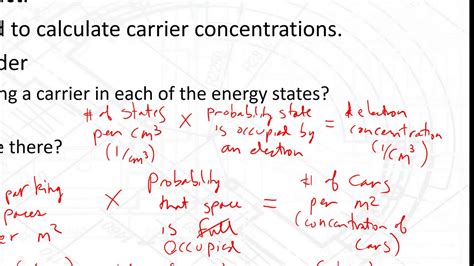 d to calculate carrier concentrations.
der
ng a carrier in each of the energy states?
# of states per cm³ (1/cm³) × Probability state is occupied by an electron = electron concentration (1/cm³)
e there?
parking
paces
er m² × Probability that space is full occupied = # of Cars per m² (concentration of cars)